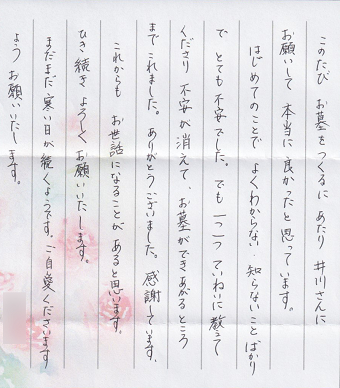 このたび お墓をつくるに あたり 井川さんに
お願いして 本当に良かったと思っています。
はじめてのことで よくわからない、知らないことばかり
で とても不安でした。 でも 一つ一つ ていねいに教えて
くださり 不安が消えて、お墓ができあがるところ
までこれました。 ありがとうございました。感謝しています。
これからも お世話になることが あると思います。
ひき続き よろしくお願いいたします。
まだまだ寒い日が続くようです。ご自愛くださいます
よう お願いいたします。